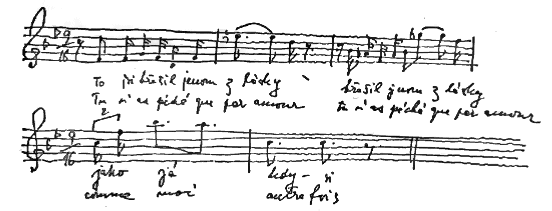 9
16
To jsi hřešil jenom z lásky hřešil jenom z lásky
Tu n'as péché que par amour tu n'as péché que par amour
2
9
16
jako já kdy-si
comme moi autre fois